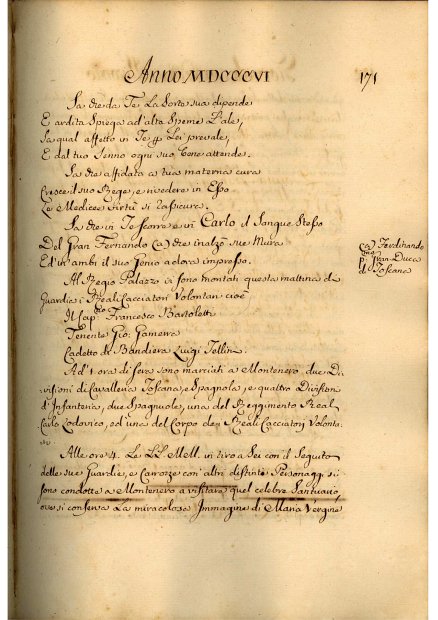 Anno MDCCCVI
171
Sa che da Te La Sorte sua dipende
E ardita Spiega ad' alta Speme L'ale,
Sa qual affetto in Te p Lei prevale,
E dal tuo Senno ogni suo bene attende.
Sa che affidato a tua materna cura
Cresce il suo Rege, e rivedere in Esso
Le Medicee Virtù si rassicura.
Sa che in Te scorre e in Carlo il Sangue Stesso
Del Gran Fernando (a) che inalzò sue Mura
Ed in ambi il suo Genio adora impresso.
(a) Ferdinando
p.mo Gran-Duca
di Toscana
Al Regio Palazzo vi sono montati questa mattina di
Guardia i Reali Cacciatori Volontari cioè
Il Cap.no Francesco Bartoletti
Tenente Gio: Gamerra
Cadetto di Bandiera Luigi Tellini.
Ad' 1 ora di sera sono marciati a Montenero due Di-
visioni di Cavalleria Toscana, e Spagnola, e quattro Divisioni
d' Infanteria, due Spagnuole, una del Reggimento Real
Carlo Lodovico, ed una del Corpo dei Reali Cacciatori Volonta-
ri.
Alle ore 4. Le LL. MM. in tiro a Sei con il Seguito
delle sue Guardie, e Carrozze con altri distinti Personagg. si
sono condotte a Montenero a visitare quel celebre Santuario,
ove si conserva La miracolosa Immagine di Maria Vergine